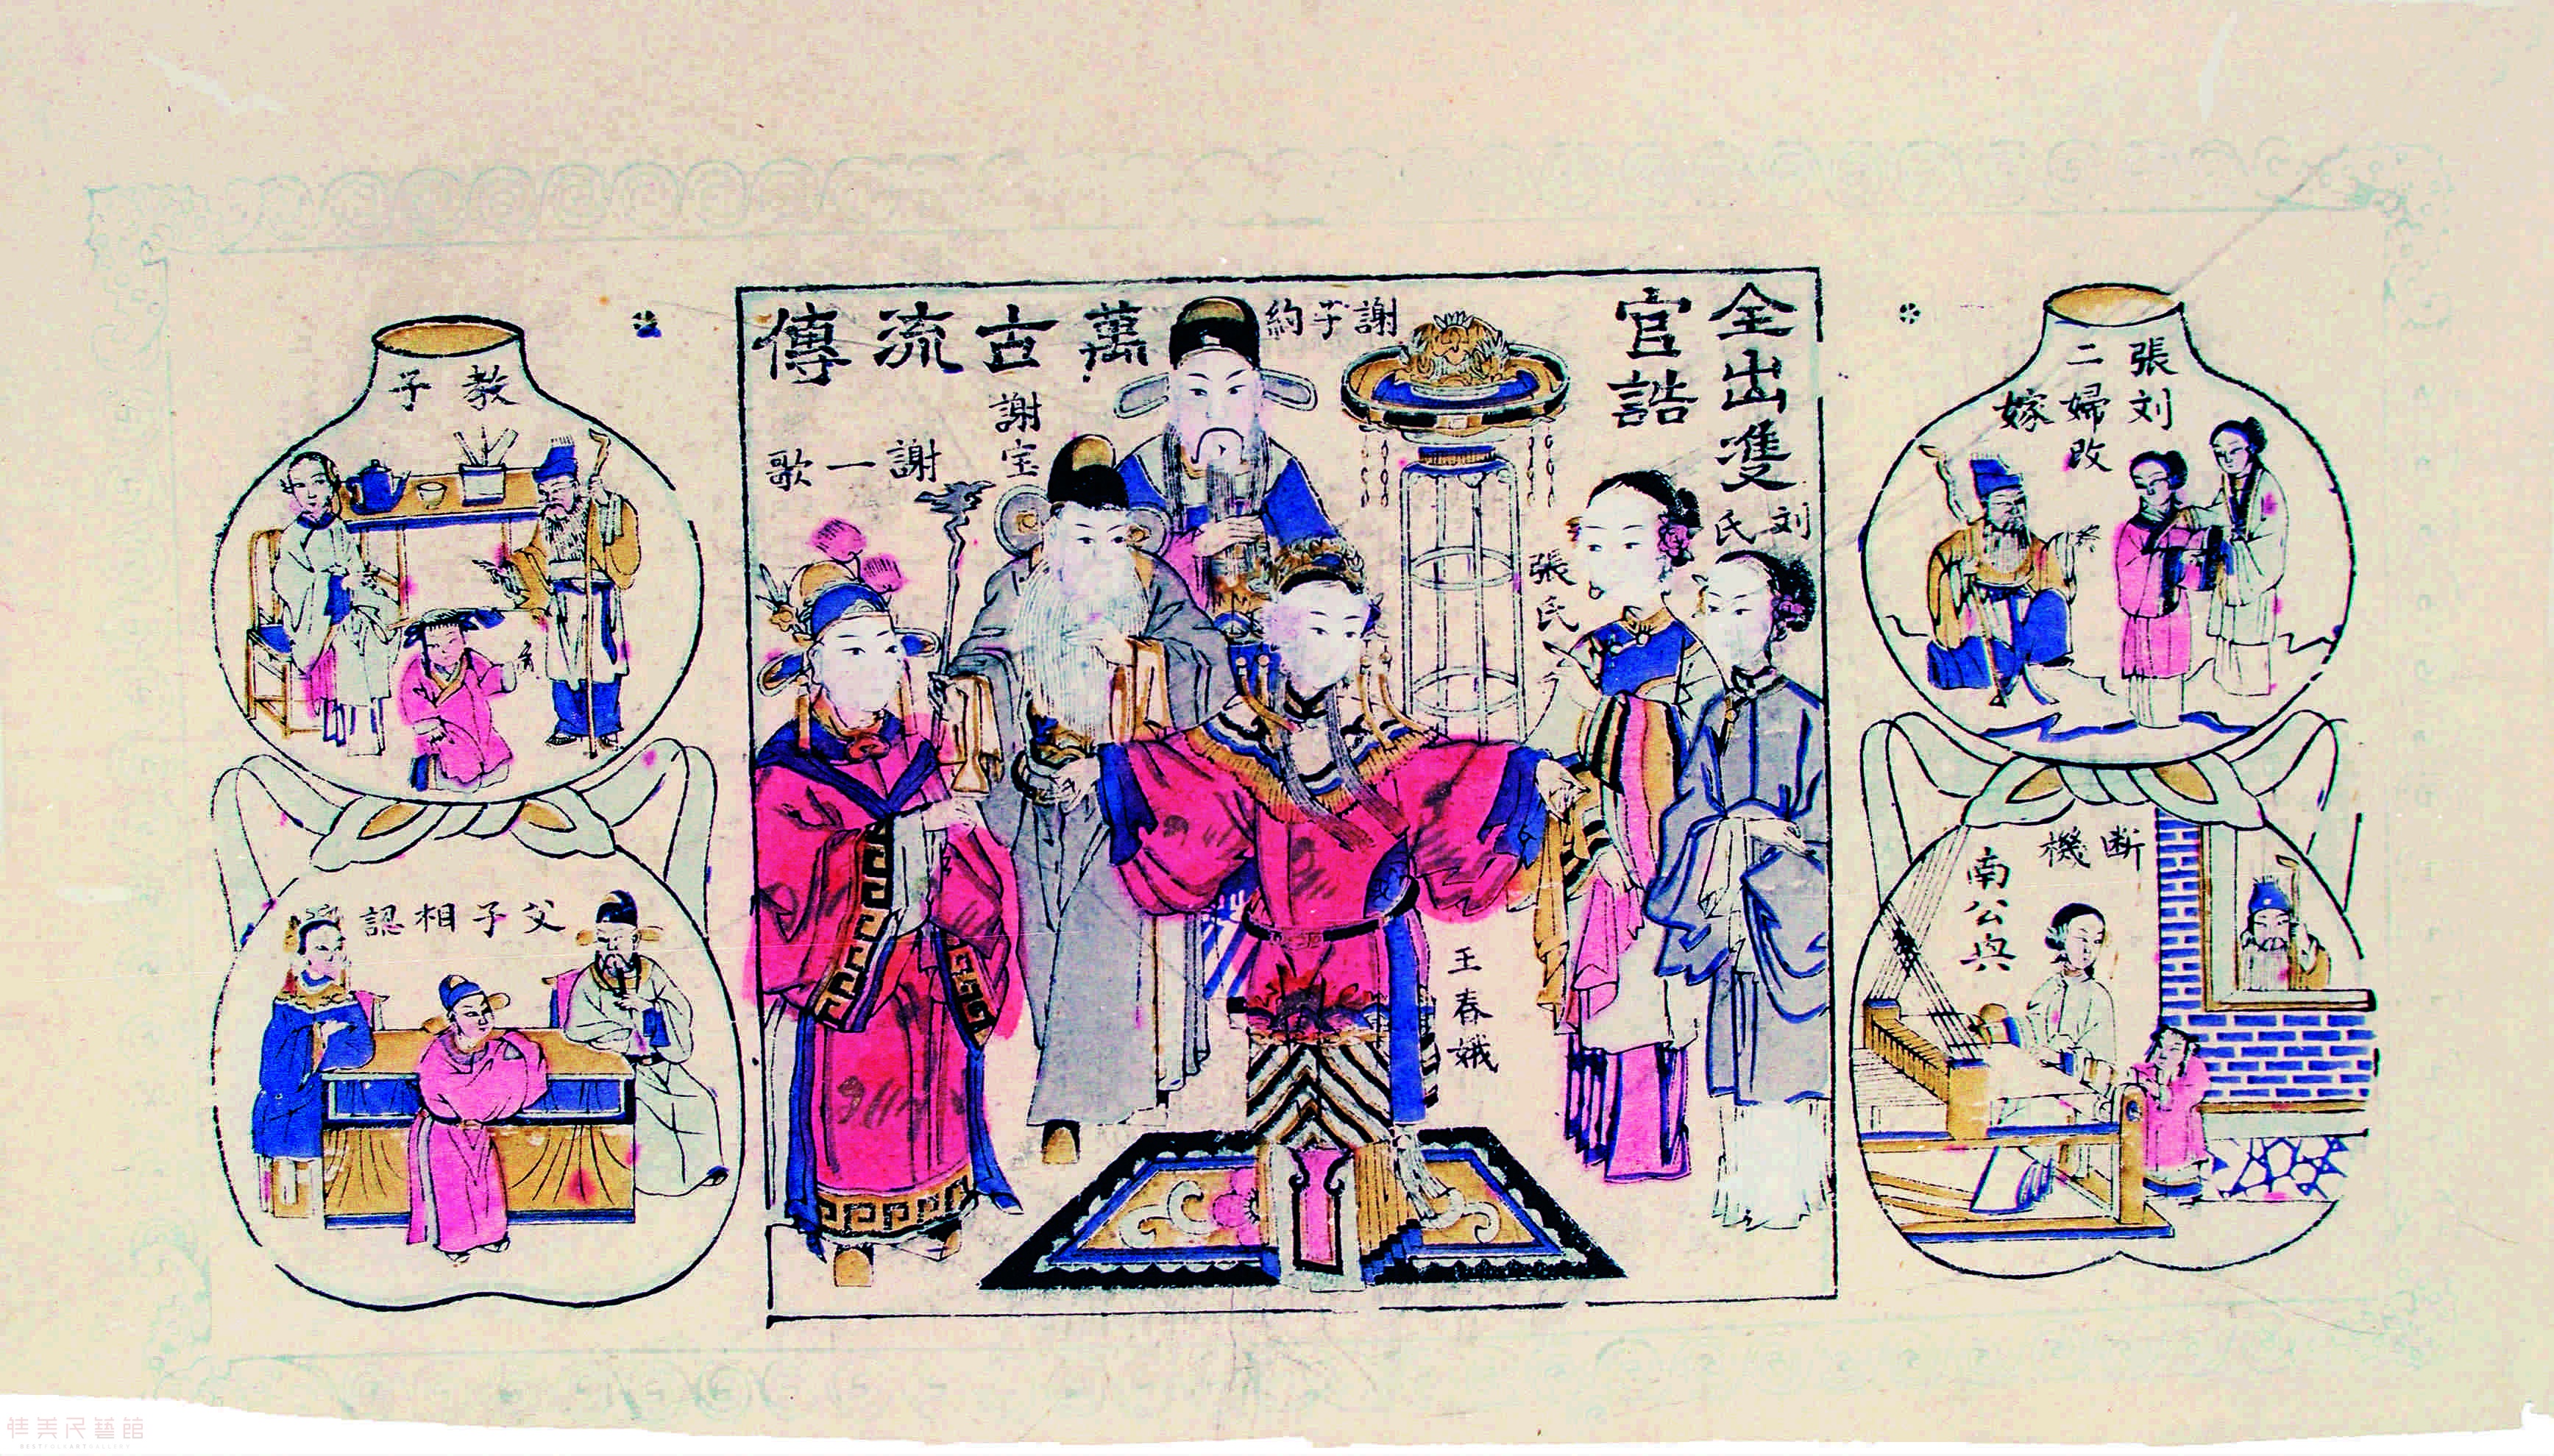 全出雙
官誥
萬古流傳
謝子約
謝宝
謝一歌
刘氏
張氏
王春娥
教子
父子相認
張刘
二婦改
嫁
断機
南公奂
佳美民藝館